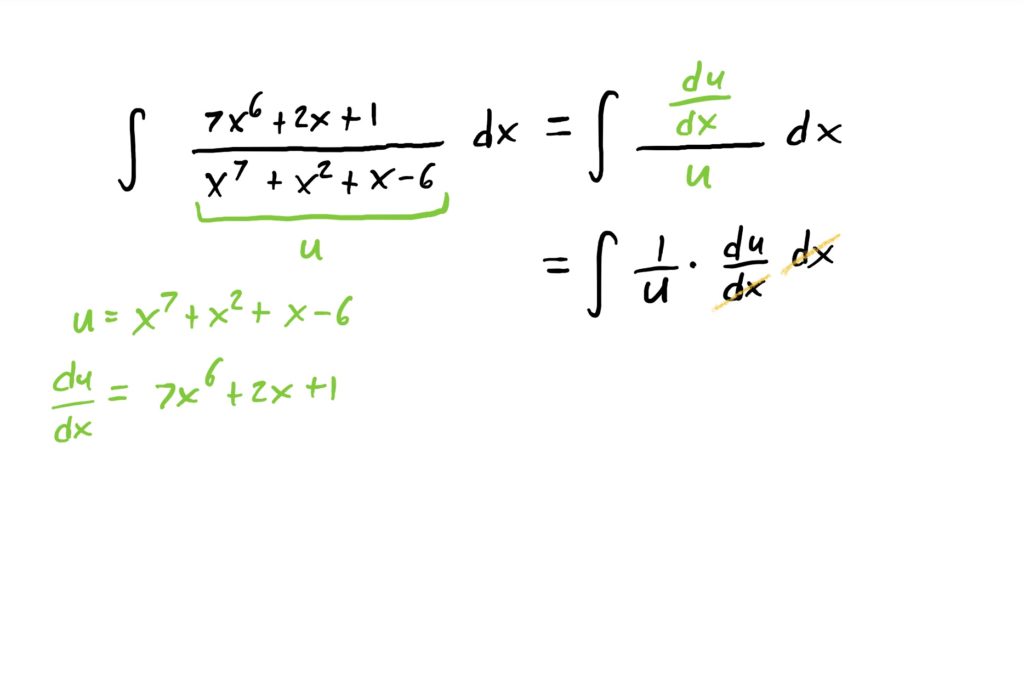 ∫ (7x⁶ + 2x + 1)/(x⁷ + x² + x - 6) dx = ∫ (du/dx)/u dx
u
= ∫ 1/u · du/dx dx
u = x⁷ + x² + x - 6
du/dx = 7x⁶ + 2x + 1